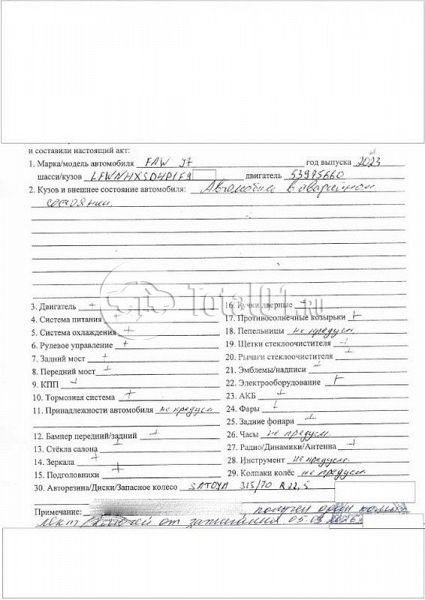 и составили настоящий акт:
1. Марка/модель автомобиля FAW J7 год выпуска 2023
шасси/кузов LFWNHXSDHP1F9 двигатель 53975660
2. Кузов и внешнее состояние автомобиля: Автомобиль в аварийном
состоянии.
3. Двигатель +
4. Система питания
5. Система охлаждения +
6. Рулевое управление +
7. Задний мост +
8. Передний мост +
9. КПП +
10. Тормозная система +
11. Принадлежности автомобиля не предусм
12. Бампер передний/задний +
13. Стёкла салона +
14. Зеркала +
15. Подголовники +
16. Ручки дверные +
17. Противосолнечные козырьки +
18. Пепельницы не предусм
19. Щетки стеклоочистителя +
20. Рычаги стеклоочистителя +
21. Эмблемы/надписи +
22. Электрооборудование +
23. АКБ +
24. Фары
25. Задние фонари +
26. Часы не предусм
27. Радио/Динамики/Антенна +
28. Инструмент не предусм
29. Колпаки колёс не предусм
30. Авторезина/Диски/Запасное колесо SATOYA 315/70 R 22,5
Примечание: получен один компл
ключей от зажигания
Total01.ru